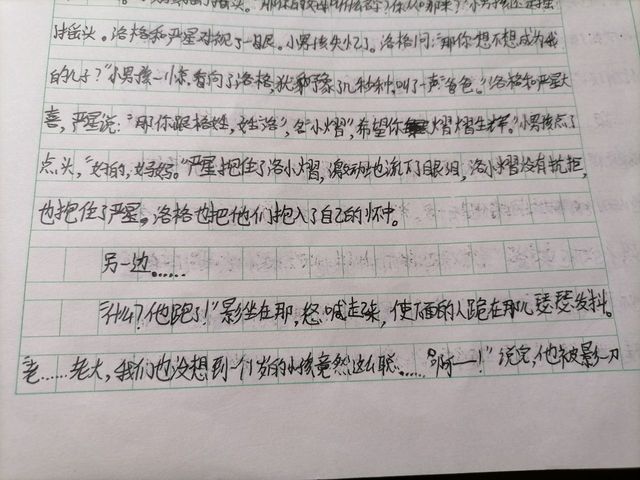 摇头。洛格和严星对视了一眼。小男孩失忆了。洛格问:"那你想不想成为我
的儿子?"小男孩一惊,看向了洛格,犹豫了几秒钟,叫了一声"爸爸。"洛格和严星大
喜,严星说:"那你跟格姓,姓洛",名"小熠",希望你熠熠生辉。"小男孩点了
点头,"好的,妈妈。"严星抱住了洛小熠,激动地流下了眼泪,洛小熠没有抗拒,
也抱住了严星。洛格也把他们抱入了自己的怀中。
另一边……
"什么?他跑了!"影坐在那,怒喊走来,使下面的人跪在那儿瑟瑟发抖。
老……老大,我们也没想到一个1岁的小孩竟然这么聪……"啊——!"说完,他就被影一刀